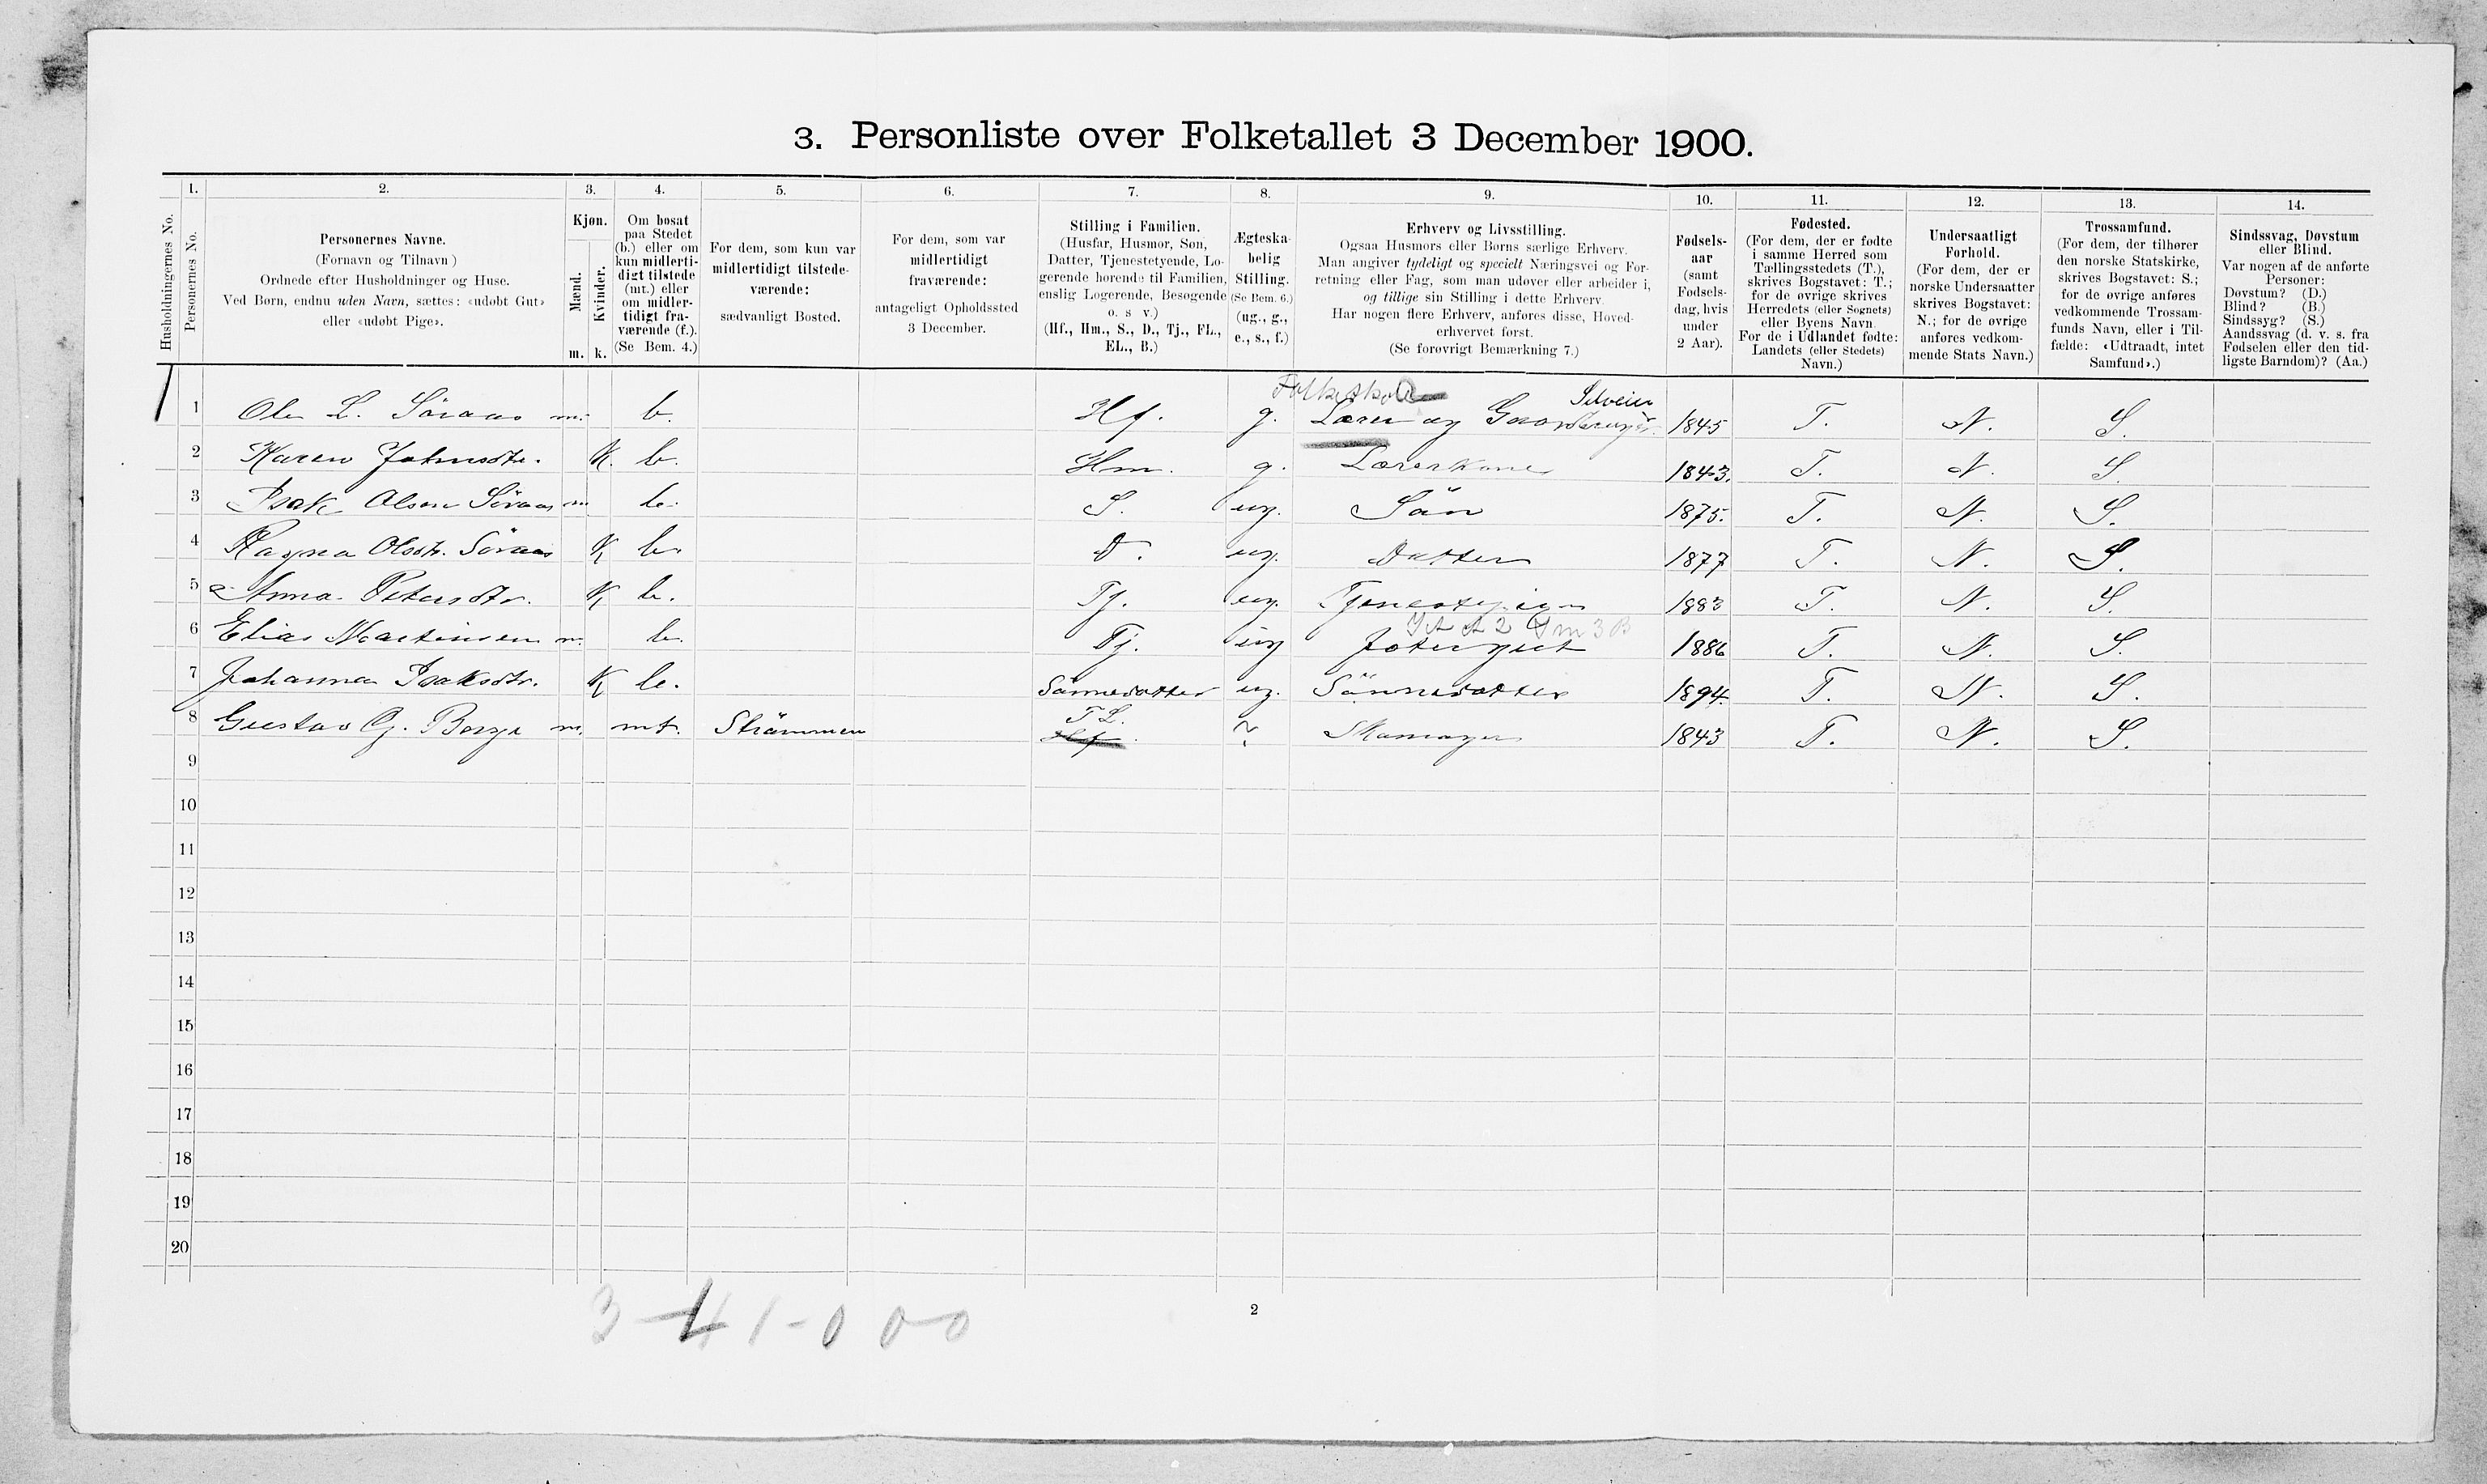 3. Personliste over Folketallet 3 December 1900.
Husholdningernes No.
1.
Personernes No.
2.
Personernes Navne.
(Fornavn og Tilnavn)
Ordnede efter Husholdninger og Huse.
Ved Børn, endnu uden Navn, sættes: «udøbt Gut»
eller «udøbt Pige».
3.
Kjøn.
Mænd.
Kvinder.
m. k.
4.
Om bosat
paa Stedet
(b.) eller om
kun midlerti-
digt tilstede
(mt.) eller
om midler-
tidigt fra-
værende (f.).
(Se Bem. 4.)
5.
For dem, som kun var
midlertidigt tilstede-
værende:
sædvanligt Bosted.
6.
For dem, som var
midlertidigt
fraværende:
antageligt Opholdssted
3 December.
7.
Stilling i Familien.
(Husfar, Husmor, Søn,
Datter, Tjenestetyende, Lo-
gerende hørende til Familien,
enslig Logerende, Besøgende
o. s v.)
(Hf., Hm., S., D., Tj., FL.,
EL., B.)
8.
Ægteska-
belig
Stilling.
(Se Bem. 6.)
(ug., g.,
e., s., f.)
9.
Erhverv og Livsstilling.
Ogsaa Husmors eller Børns særlige Erhverv.
Man angiver tydeligt og specielt Næringsvei og For-
retning eller Fag, som man udøver eller arbeider i,
og tillige sin Stilling i dette Erhverv.
Har nogen flere Erhverv, anføres disse, Hoved-
erhvervet først.
(Se forøvrigt Bemærkning 7.)
10.
Fødsels-
aar
(samt
Fødsels-
dag, hvis
under
2 Aar).
11.
Fødested.
(For dem, der er fødte
i samme Herred som
Tællingsstedets (T.),
skrives Bogstavet: T.;
for de øvrige skrives
Herredets (eller Sognets)
eller Byens Navn.
For de i Udlandet fødte:
Landets (eller Stedets)
Navn.)
12.
Undersaatligt
Forhold.
(For dem, der er
norske Undersaatter
skrives Bogstavet:
N.; for de øvrige
anføres vedkom-
mende Stats Navn.)
13.
Trossamfund.
(For dem, der tilhører
den norske Statskirke,
skrives Bogstavet: S.;
for de øvrige anføres
vedkommende Trossam-
funds Navn, eller i Til-
fælde: «Udtraadt, intet
Samfund».)
14.
Sindssvag, Døvstum
eller Blind.
Var nogen af de anførte
Personer:
Døvstum? (D.)
Blind? (B.)
Sindssyg? (S.)
Aandssvag (d. v. s. fra
Fødselen eller den tid-
ligste Barndom)? (Aa.)
Folkesko Selveier
1 1 Ole L. Søraas m. b. Hf. g. Lærer og Gaardbruger 1845 T. N. S.
2 Karen Johnsdtr. K. b. Hm. g. Lærerkone 1843. T. N. S.
3 Isak Olsen Søraas m. b. S. ug. Sön 1875. T. N. S.
4 Ragna Olsdtr. Søraas K b. D. ug. Datter 1877 T. N. S.
5 Anna Petersdtr. K b. Tj. ug. Tjenestepige 1883 T. N. S.
6 Elias Martinsen m. b. Tj. ug 1886 T. N. S.
7 Johanna Isaksdtr. K b. Sønnedatter ug. Sönnedatter 1894. T. N. S.
F L.
8 Gustav O. Borge m. mt. Strömmen Hf. ? Skomager 1843 T. N. S.
9
10
11
12
13
14
15
16
17
18
19
20
3-41-0 0-0
2